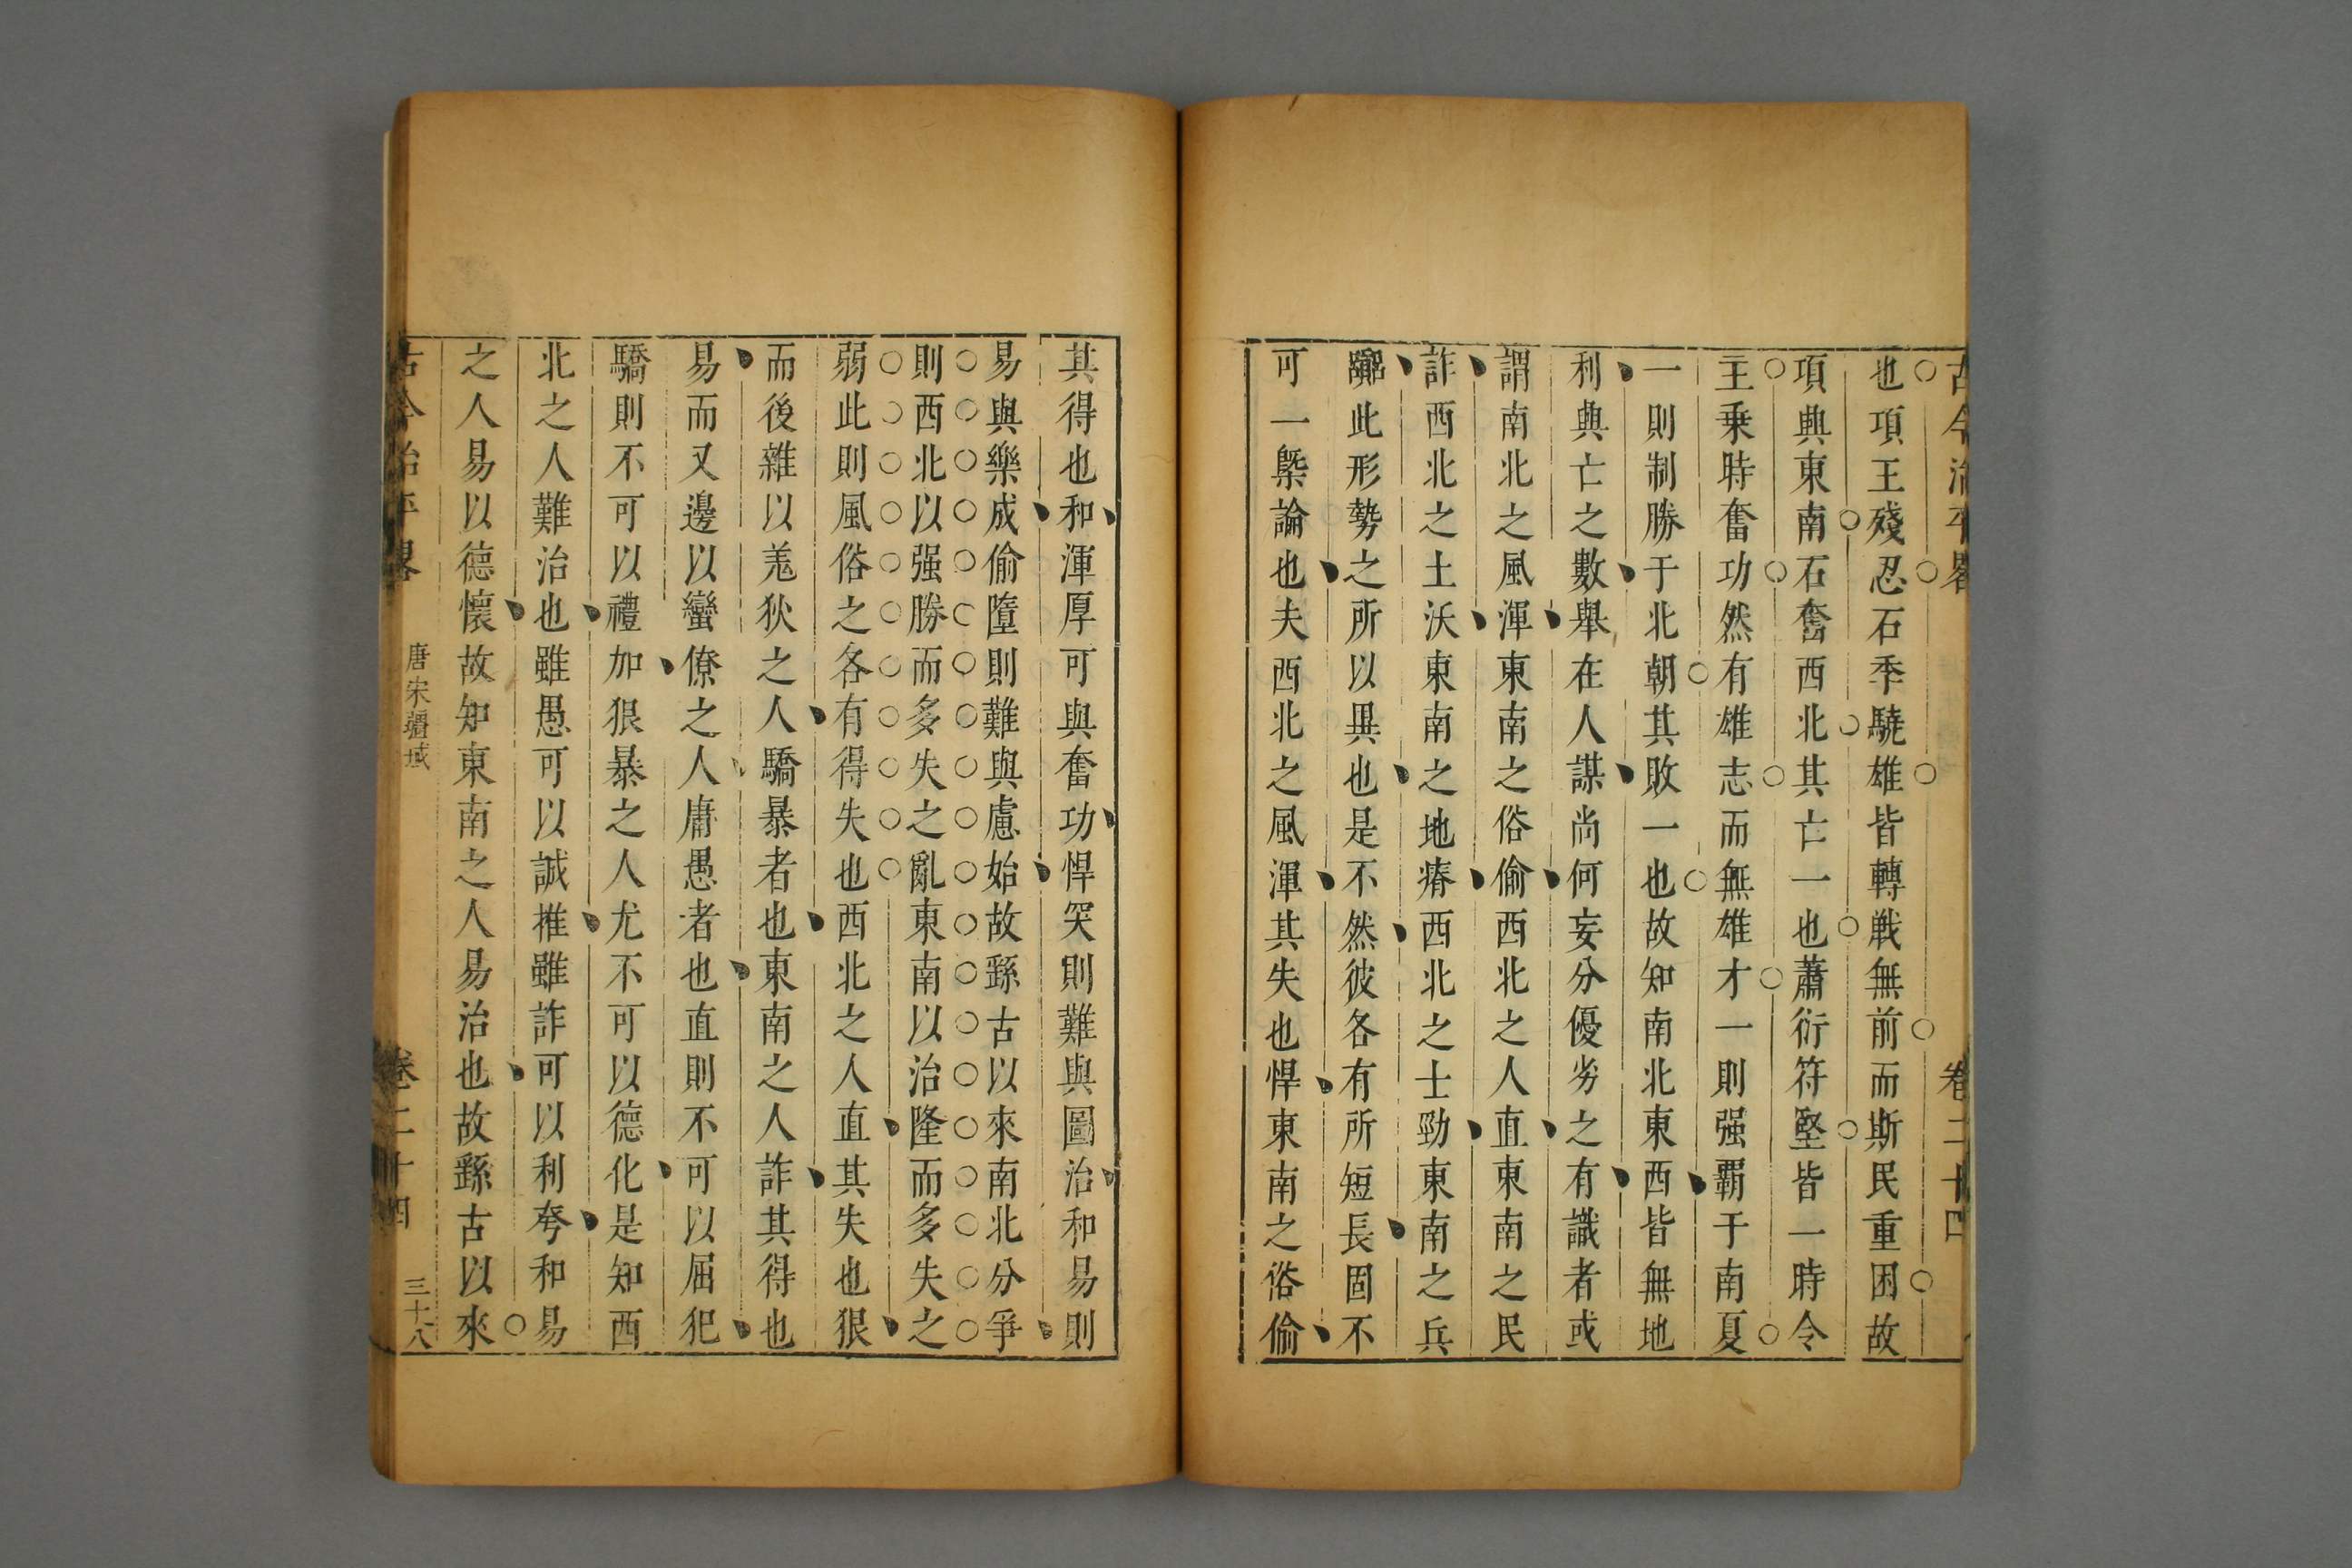 古今治平畧 卷二十四
也項王殘忍石季驍雄皆轉戰無前而斯民重困故
項興東南石奮西北其亡一也蕭衍符堅皆一時令
主乗時奮功然有雄志而無雄才一則强覇于南夏
一則制勝于北朝其敗一也故知南北東西皆無地
利興亡之數舉在人謀尚何妄分優劣之有識者或
謂南北之風渾東南之俗偷西北之人直東南之民
詐西北之土沃東南之地瘠西北之士勁東南之兵
此形勢之所以異也是不然彼各有所短長固不
可一槩論也夫西北之風渾其失也悍東南之俗偷
其得也和渾厚可與奮功悍突則難與圖治和易則
易與樂成偷墮則難與慮始故繇古以來南北分爭
則西北以强勝而多失之亂東南以治隆而多失之
弱此則風俗之各有得失也西北之人直其失也狠
而後雜以羗狄之人驕暴者也東南之人詐其得也
易而又邊以蠻僚之人庸愚者也直則不可以屈犯
驕則不可以禮加狠暴之人尤不可以德化是知西
北之人難治也雖愚可以誠推雖詐可以利夸和易
之人易以德懷故知東南之人易治也故繇古以來
古今治平畧 唐宋疆域 卷二十四 三十八